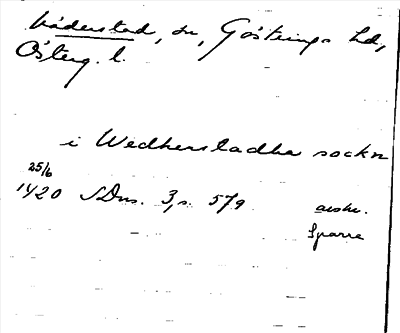 Väderstad, sn, Göstrings hd,
Österg. l.
i Wedherstadha sockn
25/6
1420 SDns. 3, s. 579 avskr.
Sparre